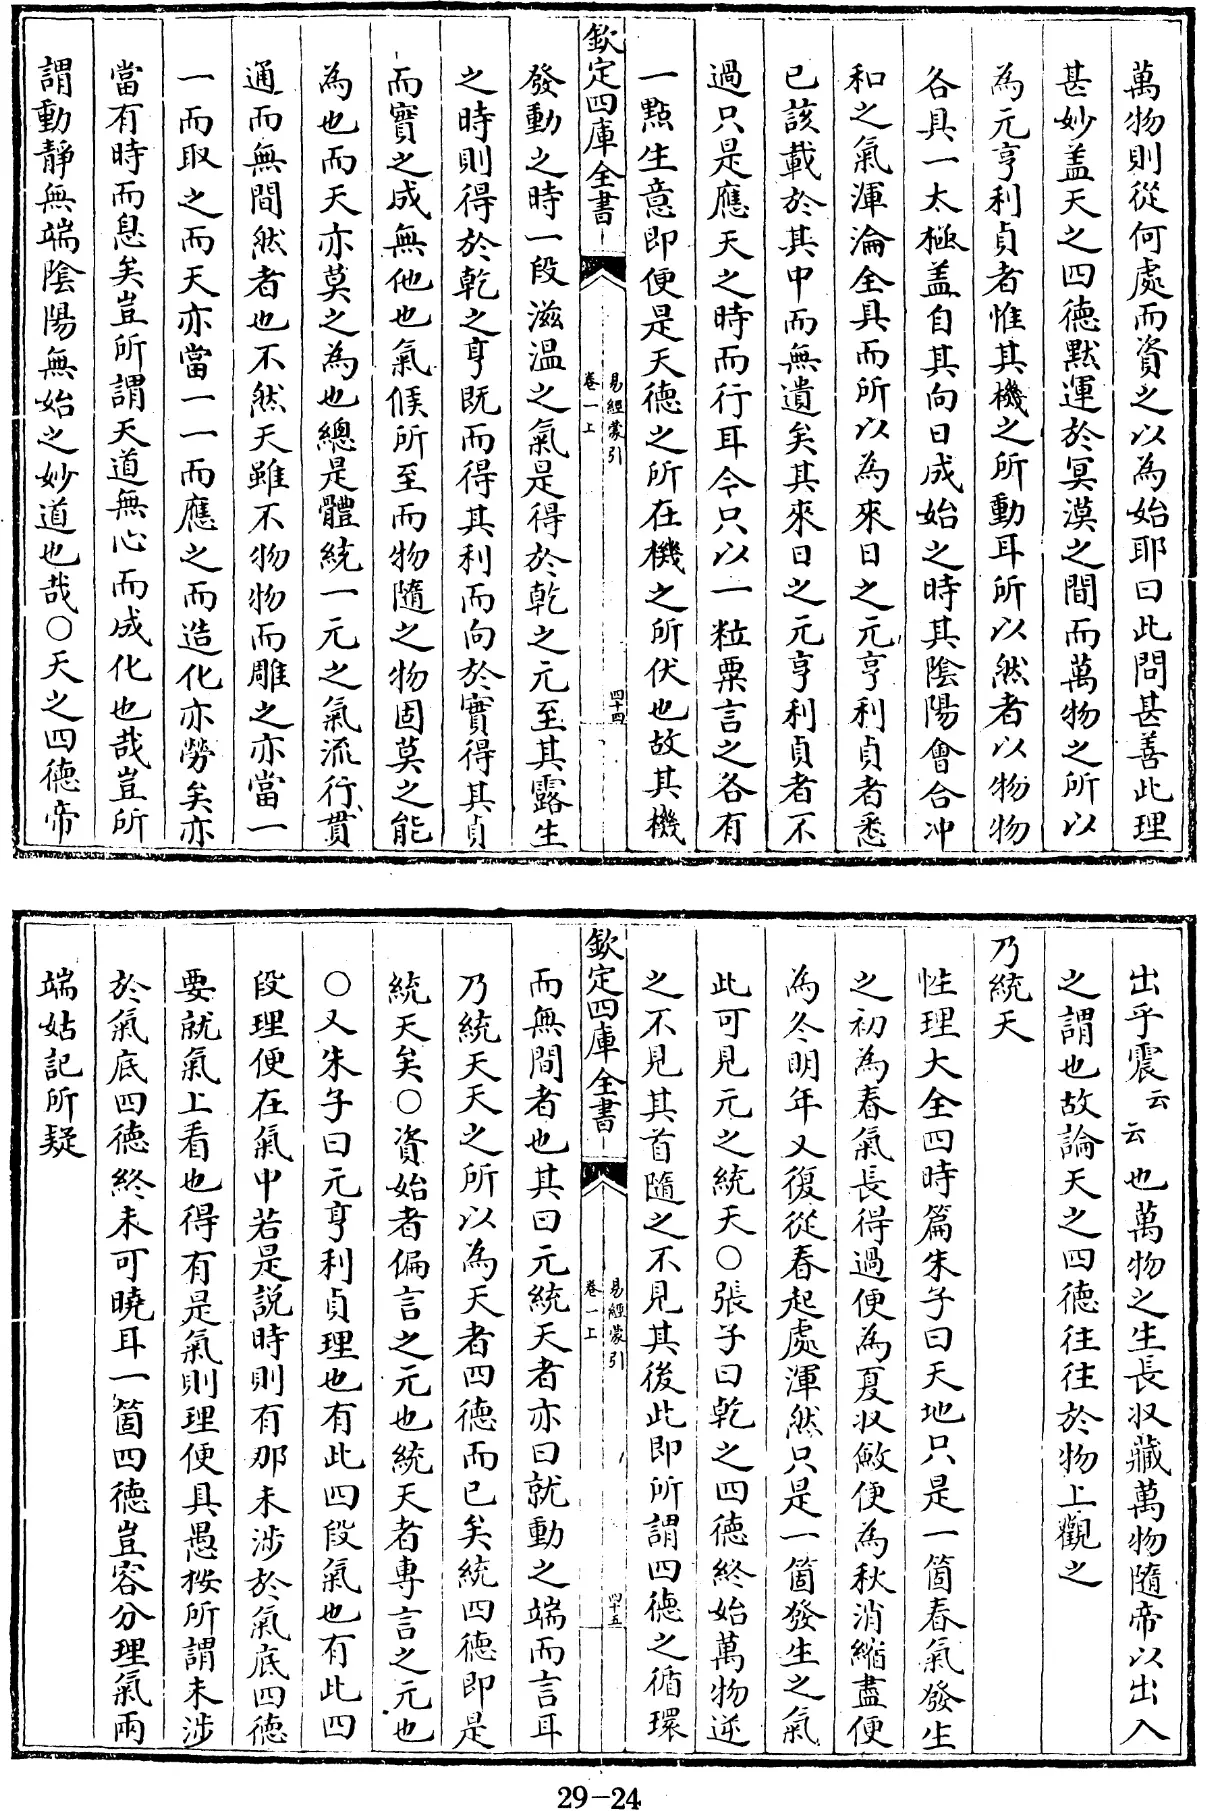 萬物則從何處而資之以為始耶曰此問甚善此理
甚妙盖天之四德默運於冥漠之間而萬物之所以
為元亨利貞者惟其機之所動耳所以然者以物物
各具一太極盖自其向日成始之時其陰陽會合冲
和之氣渾淪全具而所以為來日之元亨利貞者悉
已該載於其中而無遺矣其來日之元亨利貞者不
過只是應天之時而行耳今只以一粒粟言之各有
一點生意即便是天德之所在機之所伏也故其機
欽定四庫全書
易經蒙引
卷一上
四十四
發動之時一段滋温之氣是得於乾之元至其露生
之時則得於乾之亨既而得其利而向於實得其貞
而實之成無他也氣候所至而物隨之物固莫之能
為也而天亦莫之為也總是體統一元之氣流行貫
通而無間然者也不然天雖不物物而雕之亦當一
一而取之而天亦當一一而應之而造化亦勞矣亦
當有時而息矣豈所謂天道無心而成化也哉豈所
謂動靜無端陰陽無始之妙道也哉○天之四德帝
出乎震云云也萬物之生長収藏萬物隨帝以出入
之謂也故論天之四德往往於物上觀之
乃統天
性理大全四時篇朱子曰天地只是一箇春氣發生
之初為春氣長得過便為夏収斂便為秋消縮盡便
為冬明年又復從春起處渾然只是一箇發生之氣
此可見元之統天○張子曰乾之四德終始萬物逆
之不見其首隨之不見其後此即所謂四德之循環
欽定四庫全書
易經蒙引
卷一上
四十五
而無間者也其曰元統天者亦曰就動之端而言耳
乃統天天之所以為天者四德而已矣統四德即是
統天矣○資始者偏言之元也統天者專言之元也
○又朱子曰元亨利貞理也有此四段氣也有此四
段理便在氣中若是説時則有那未涉於氣底四德
要就氣上看也得有是氣則理便具愚按所謂未涉
於氣底四德終未可曉耳一箇四德豈容分理氣兩
端姑記所疑
29-24